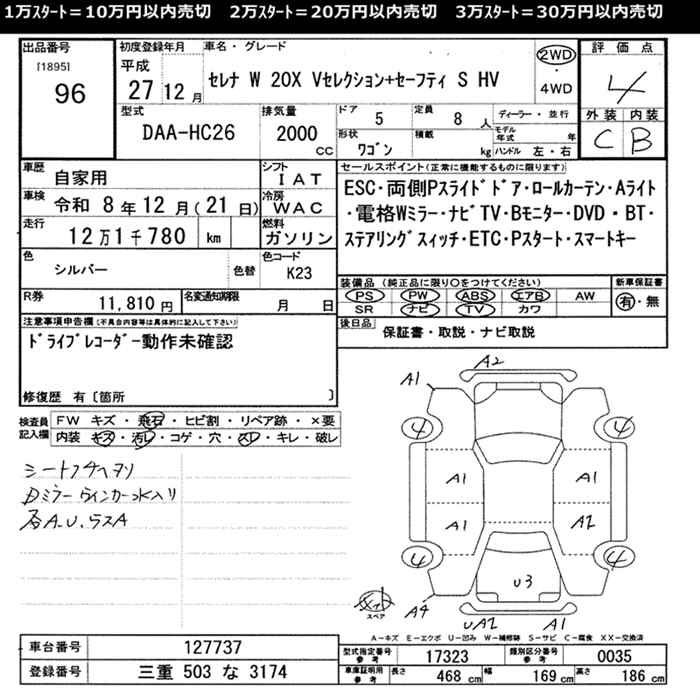 1万スタート＝10万円以内売切　2万スタート＝20万円以内売切　3万スタート＝30万円以内売切
出品番号
[1895]
96
初度登録年月
平成
27 12 月
車名・グレード
セレナ W 20X Vセレクション+セーフティ S HV
2WD
・
4WD
評価点
4
外装 内装
C B
型式
DAA-HC26
排気量
2000
CC
ドア
5
定員
8 人
形状
ワゴン
積載
kg
ディーラー・並行
モデル年式 年
ハンドル 左・右
車歴
自家用
シフト
IAT
車検
令和 8 年 12 月 ( 21 日)
冷房
WAC
走行
12万1千780 km
燃料
ガソリン
色
シルバー
色替
色コード
K23
R券
11,810 円
名変通知期限
月 日
セールスポイント(正常に機能するものに限ります)
ESC・両側Pスライドドア・ロールカーテン・Aライト
・電格Wミラー・ナビTV・Bモニター・DVD・BT・
ステアリングスイッチ・ETC・Pスタート・スマートキー
装備品 (純正品に限り○をつけてください)
PS PW ABS エアB AW
SR ナビ TV カワ
新車保証書
有・無
後日品
保証書・取説・ナビ取説
注意事項申告欄(不具合内容等は具体的に記入して下さい)
ドライブレコーダー動作未確認
修復歴 有〔箇所 〕
検査員
記入欄
FW キズ・飛石・ヒビ割・リペア跡・×要
内装 キズ・汚レ・コゲ・穴・スレ・キレ・破レ
シートフチヘタリ
Dミラーウィンカー水入り
各A.U.ウスA
A2
A1
4
4
A1
A1
A1
A2
4
4
U3
A4
UA2
A1
スペア
A－キズ E－エクボ U－凹み W－補修跡 S－サビ C－腐食 XX－交換済
車台番号
127737
登録番号
三重 503 な 3174
型式指定番号
参考
17323
類別区分番号
参考
0035
車庫証明用
参考
長さ
468 cm
幅
169 cm
高さ
186 cm